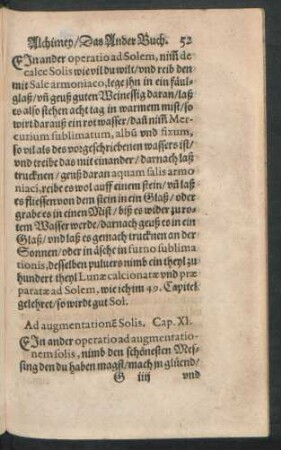 Alchimey/Das Ander Buch. 52
EIn ander operatio ad Solem, nim̃ de
calce Solis wie vil du wilt/vnd reib den
mit Sale armoniaco, lege jhn in ein fäul-
glaß/vñ geuß guten Weinessig daran/laß
es also stehen acht tag in warmem mist/so
wirt darauß ein rot wasser/dañ nim̃ Mer-
curium sublimatum, albũ vnd fixum,
so vil als des vorgeschriebenen wassers ist/
vnd treibe das mit einander/darnach laß
trucknen/geuß daran aquam salis armo
niaci, reibe es wol auff einem stein/vñ laß
es fliessen von dem stein in ein Glaß/oder
grabe es in einen Mist/biß es wider zu ro-
tem Wasser werde/darnach geuß es in ein
Glaß/vnd laß es gemach trucknen an der
Sonnen/oder in äsche in furno sublima
tionis, desselben puluers nimb ein theyl zu
hundert theyl Lunæ calcionatæ vnd præ
paratæ ad Solem, wie ich im 49. Capitel
gelehret/so wirdt gut Sol.
Ad augmentationẽ Solis. Cap. XI.
EIn ander operatio ad augmentatio-
nem solis, nimb den schönesten Mes-
sing den du haben magst/mach jn glüend/
G iiij vnd